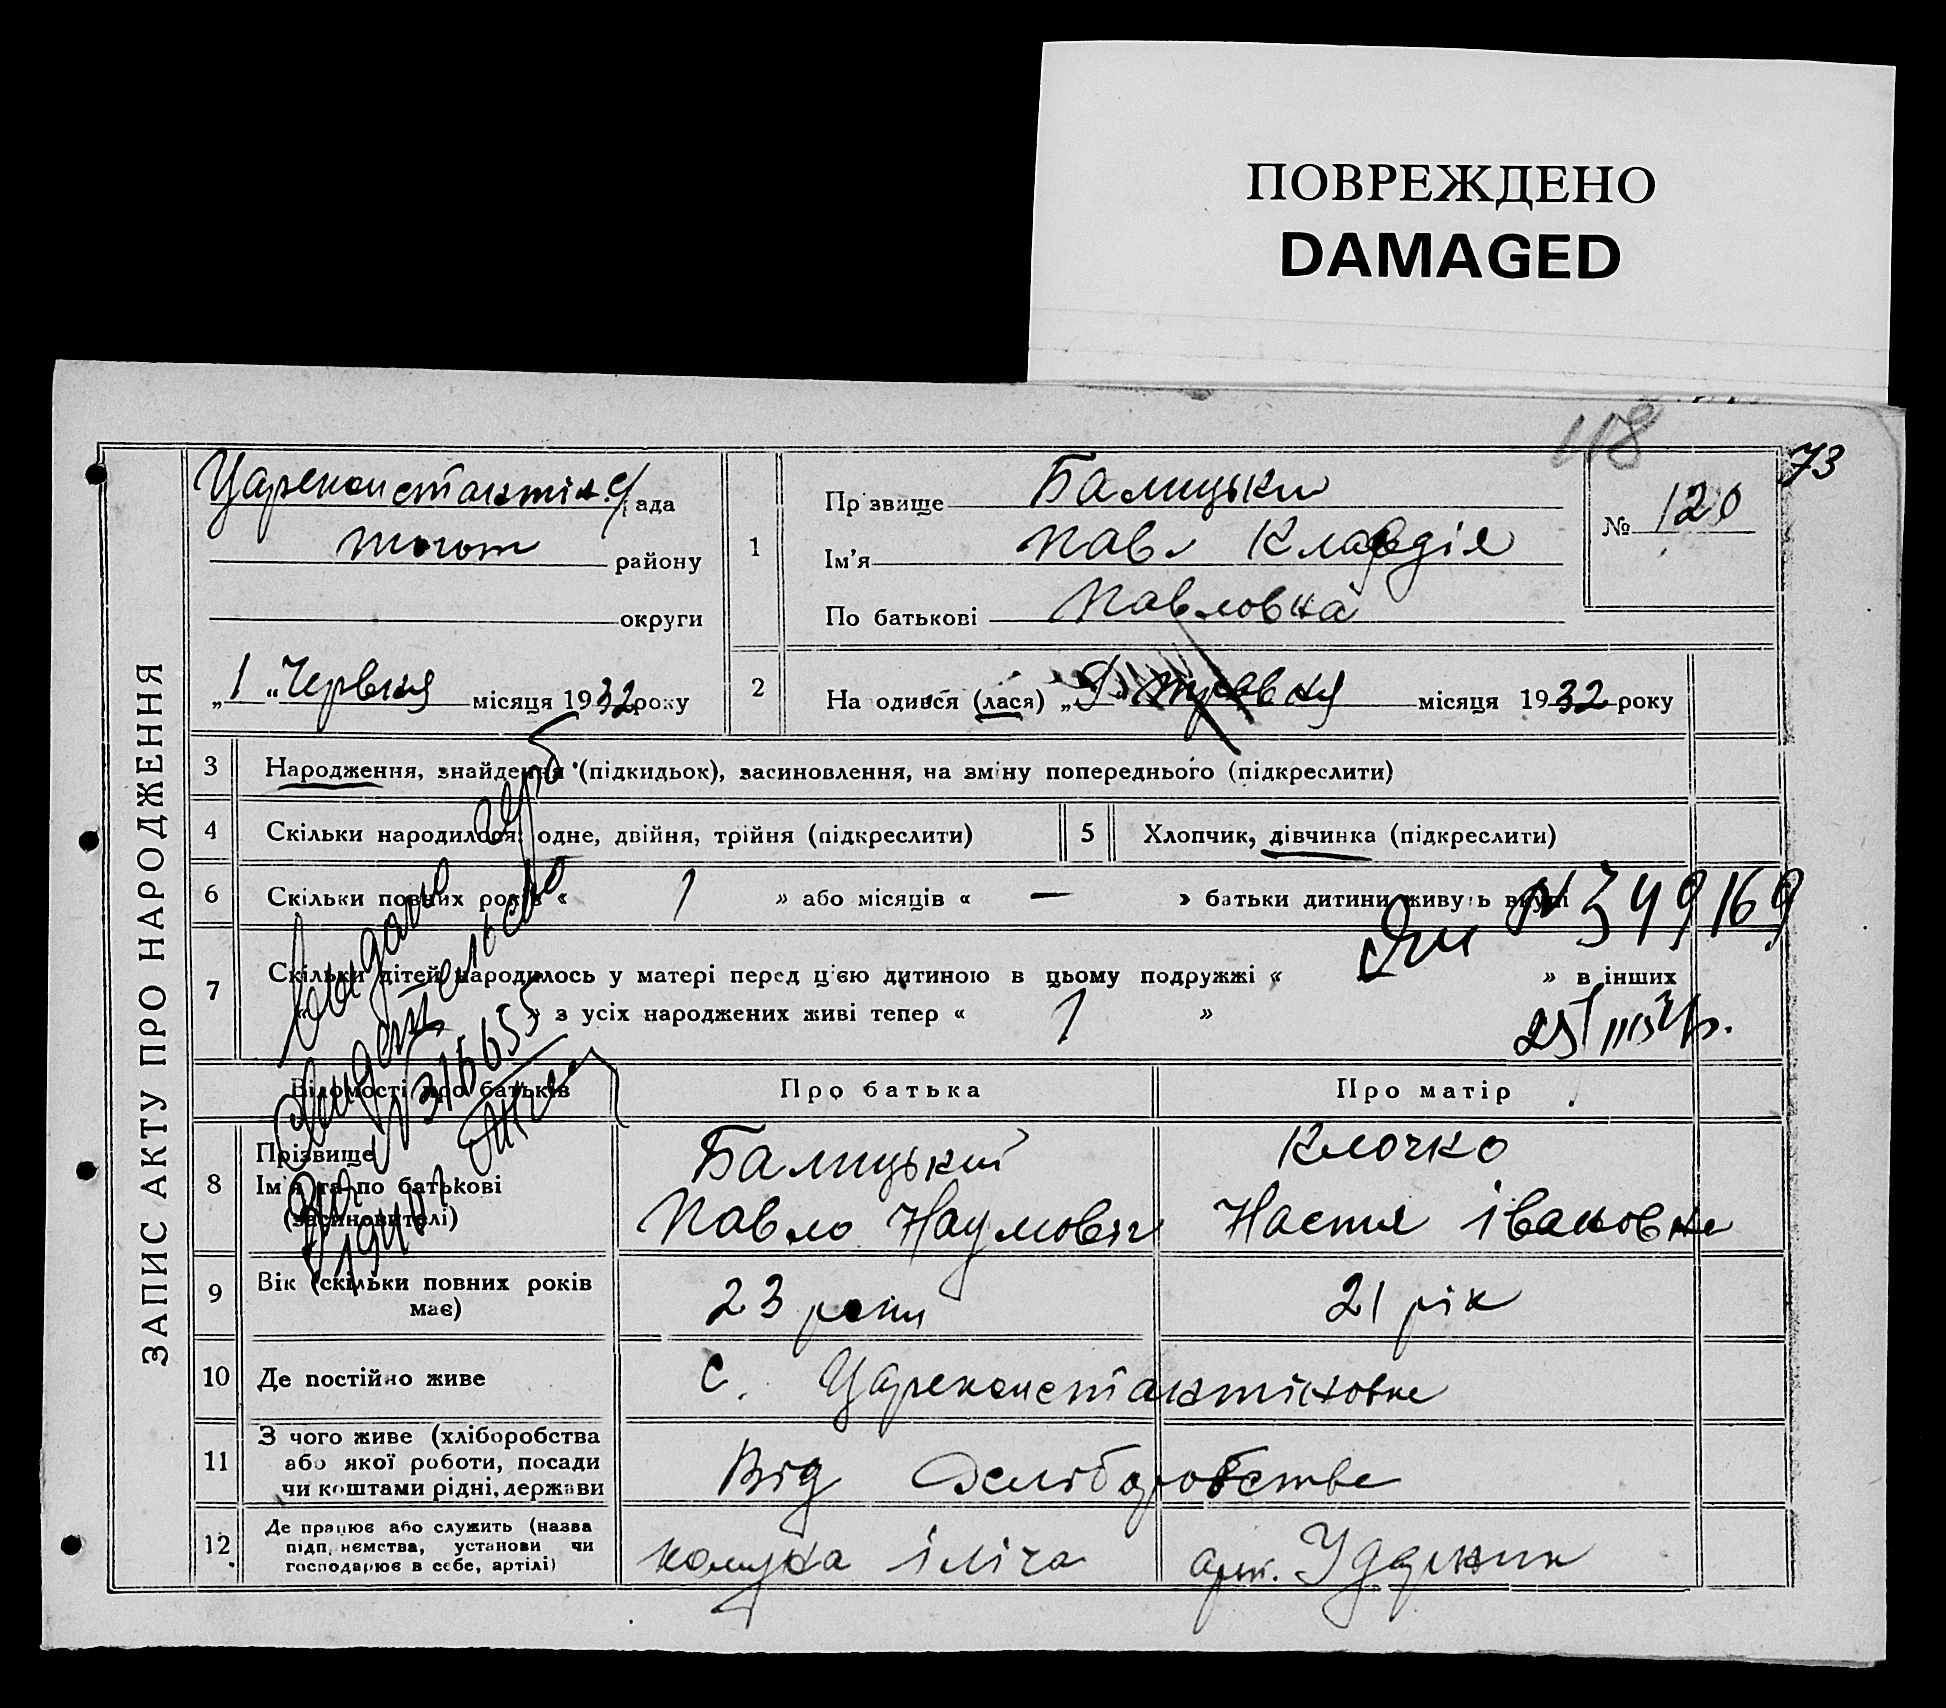 ПОВРЕЖДЕНО
DAMAGED
118
73
ЗАПИС АКТУ ПРО НАРОДЖЕННЯ
Цареконстантин. с/рада
тогот району
округи
„1" Червня місяця 1932 року
1
Прізвище Балицьки
Ім'я Павл Клавдія
По батькові Павловна
№ 120
2 На одився (лася) місяця 1932 року
3 Народження, знайдення (підкидьок), засиновлення, на зміну попереднього (підкреслити)
4 Скільки народилося: одне, двійня, трійня (підкреслити)
5 Хлопчик, дівчинка (підкреслити)
6 Скільки повних років « 1 » або місяців « — » батьки дитини живуть вкупі
№ 349169
7 Скільки дітей народилось у матері перед цією дитиною в цьому подружжі « » в інших
« » з усіх народжених живі тепер « 1 »
Видано
316655
Відомості про батьків
Про батька
Про матір
8 Прізвище
Ім'я та по батькові
(засиновителі)
Балицький
Павло Наумович
Клочко
Настя Івановна
1940
9 Вік (скільки повних років має)
23 роки
21 рік
10 Де постійно живе
с. Цареконстантиновке
11 З чого живе (хліборобства
або якої роботи, посади
чи коштами рідні, держави
Від хліборобстве
12 Де працює або служить (назва
підп, немства, установи чи
господарює в себе, артілі)
комуна Іліча
арт. Ударник